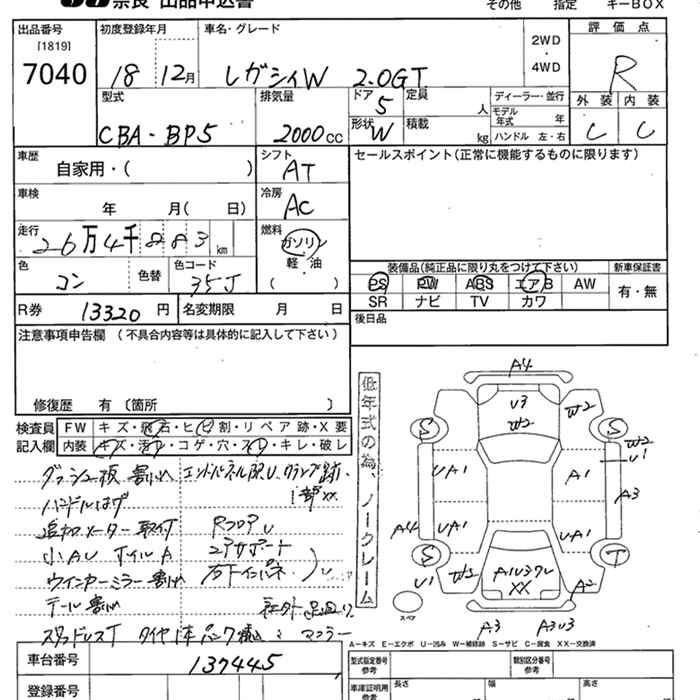 奈良 出品申込書 その他 指定 キーBOX
出品番号 [1819] 7040
初度登録年月 18 12月
車名・グレード レガシィW 2.0GT
2WD・4WD
評価点 R
型式 CBA-BP5
排気量 2000cc
ドア 5 定員 人
ディーラー・並行
モデル年式 年
形状 W 積載 kg ハンドル 左・右
外装 C 内装 C
車歴 自家用・( )
シフト AT
セールスポイント(正常に機能するものに限ります)
車検 年 月( 日)
冷房 AC
走行 26万4千883km
燃料 ガソリン 軽・油 ( )
色 コン 色替 色コード 35J
装備品(純正品に限り丸をつけて下さい) 新車保証書
PS PW ABS エアB AW 有・無
SR ナビ TV カワ
R券 13320円 名変期限 月 日
後日品
注意事項申告欄 (不具合内容等は具体的に記入して下さい)
修復歴 有 〔箇所 〕
検査員記入欄
FW キズ・飛石・ヒビ割・リペア跡・X要
内装 キズ・汚れ・コゲ・穴・スレ・キレ・破レ
ダッシュ板 割れ エンドパネル
ハンドルはげ
追加メーター 取付 RフロアU
小AU ホイルA コアサポート
ウインカーミラー 割れ
テール 割れ 社外
スタッドレスT タイヤ1本パンク マフラー
低年式の為、ノークレーム
A4
U3
W2
W2
S
S
W2
U1
UA1
A1
A3
A4
UA1
UA1
S
T
U1
W2
A1U3
XX
A2
A3
A3U3
スペア
A－キズ E－エクボ U－凹み W－補修跡 S－サビ C－腐食 XX－交換済
車台番号 137445
登録番号
型式指定番号 参考 類別区分番号 参考
車庫証明用 参考 長さ 幅 高さ